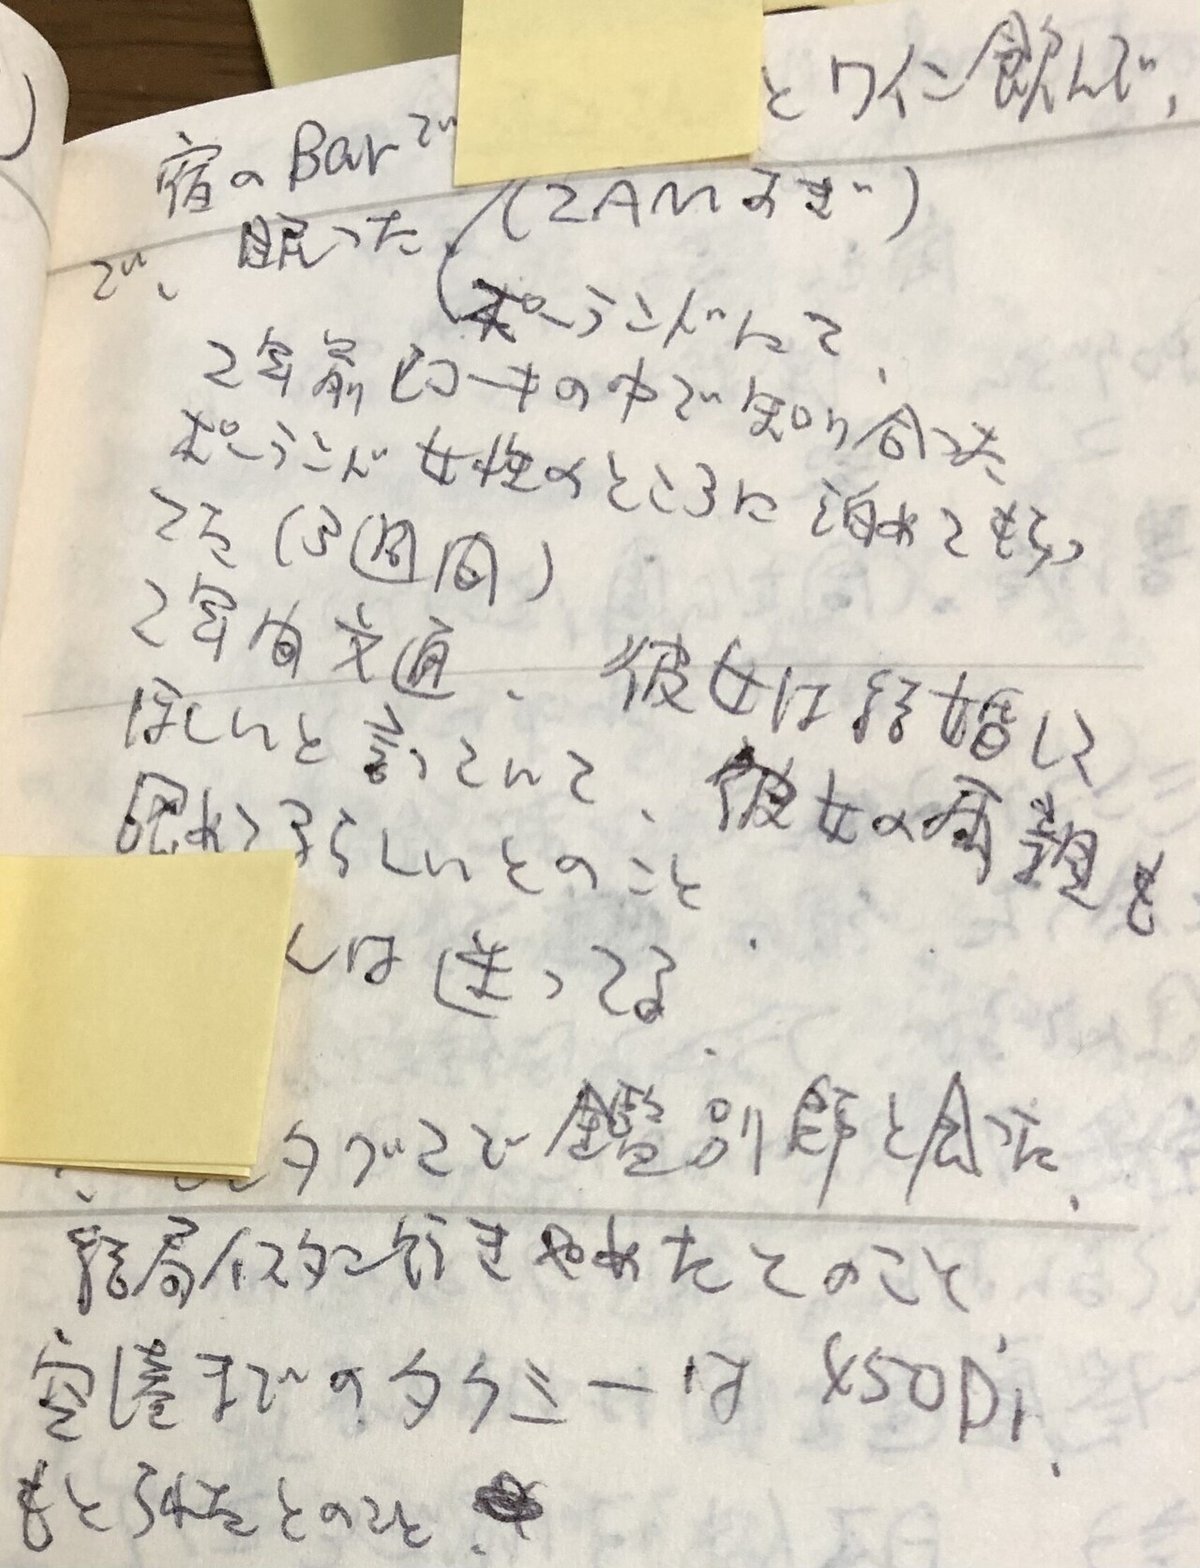 宿のBarで
とワイン飲んで、
で、眠った。(2AMすぎ)
ポーランドにて、
2年前モロッコの中で知り合った
ポーランド女性のところに泊めてもらっ
てた(3週間)
2年間文通、彼女は結婚して
ほしいと言っていて、彼女の両親も
認めてるらしいとのこと
んは迷ってる
タグマで鑑別師と会った、
結局イスタン行きやめたとのこと
空港までのタクシーは450Di
もとられたとのこと。